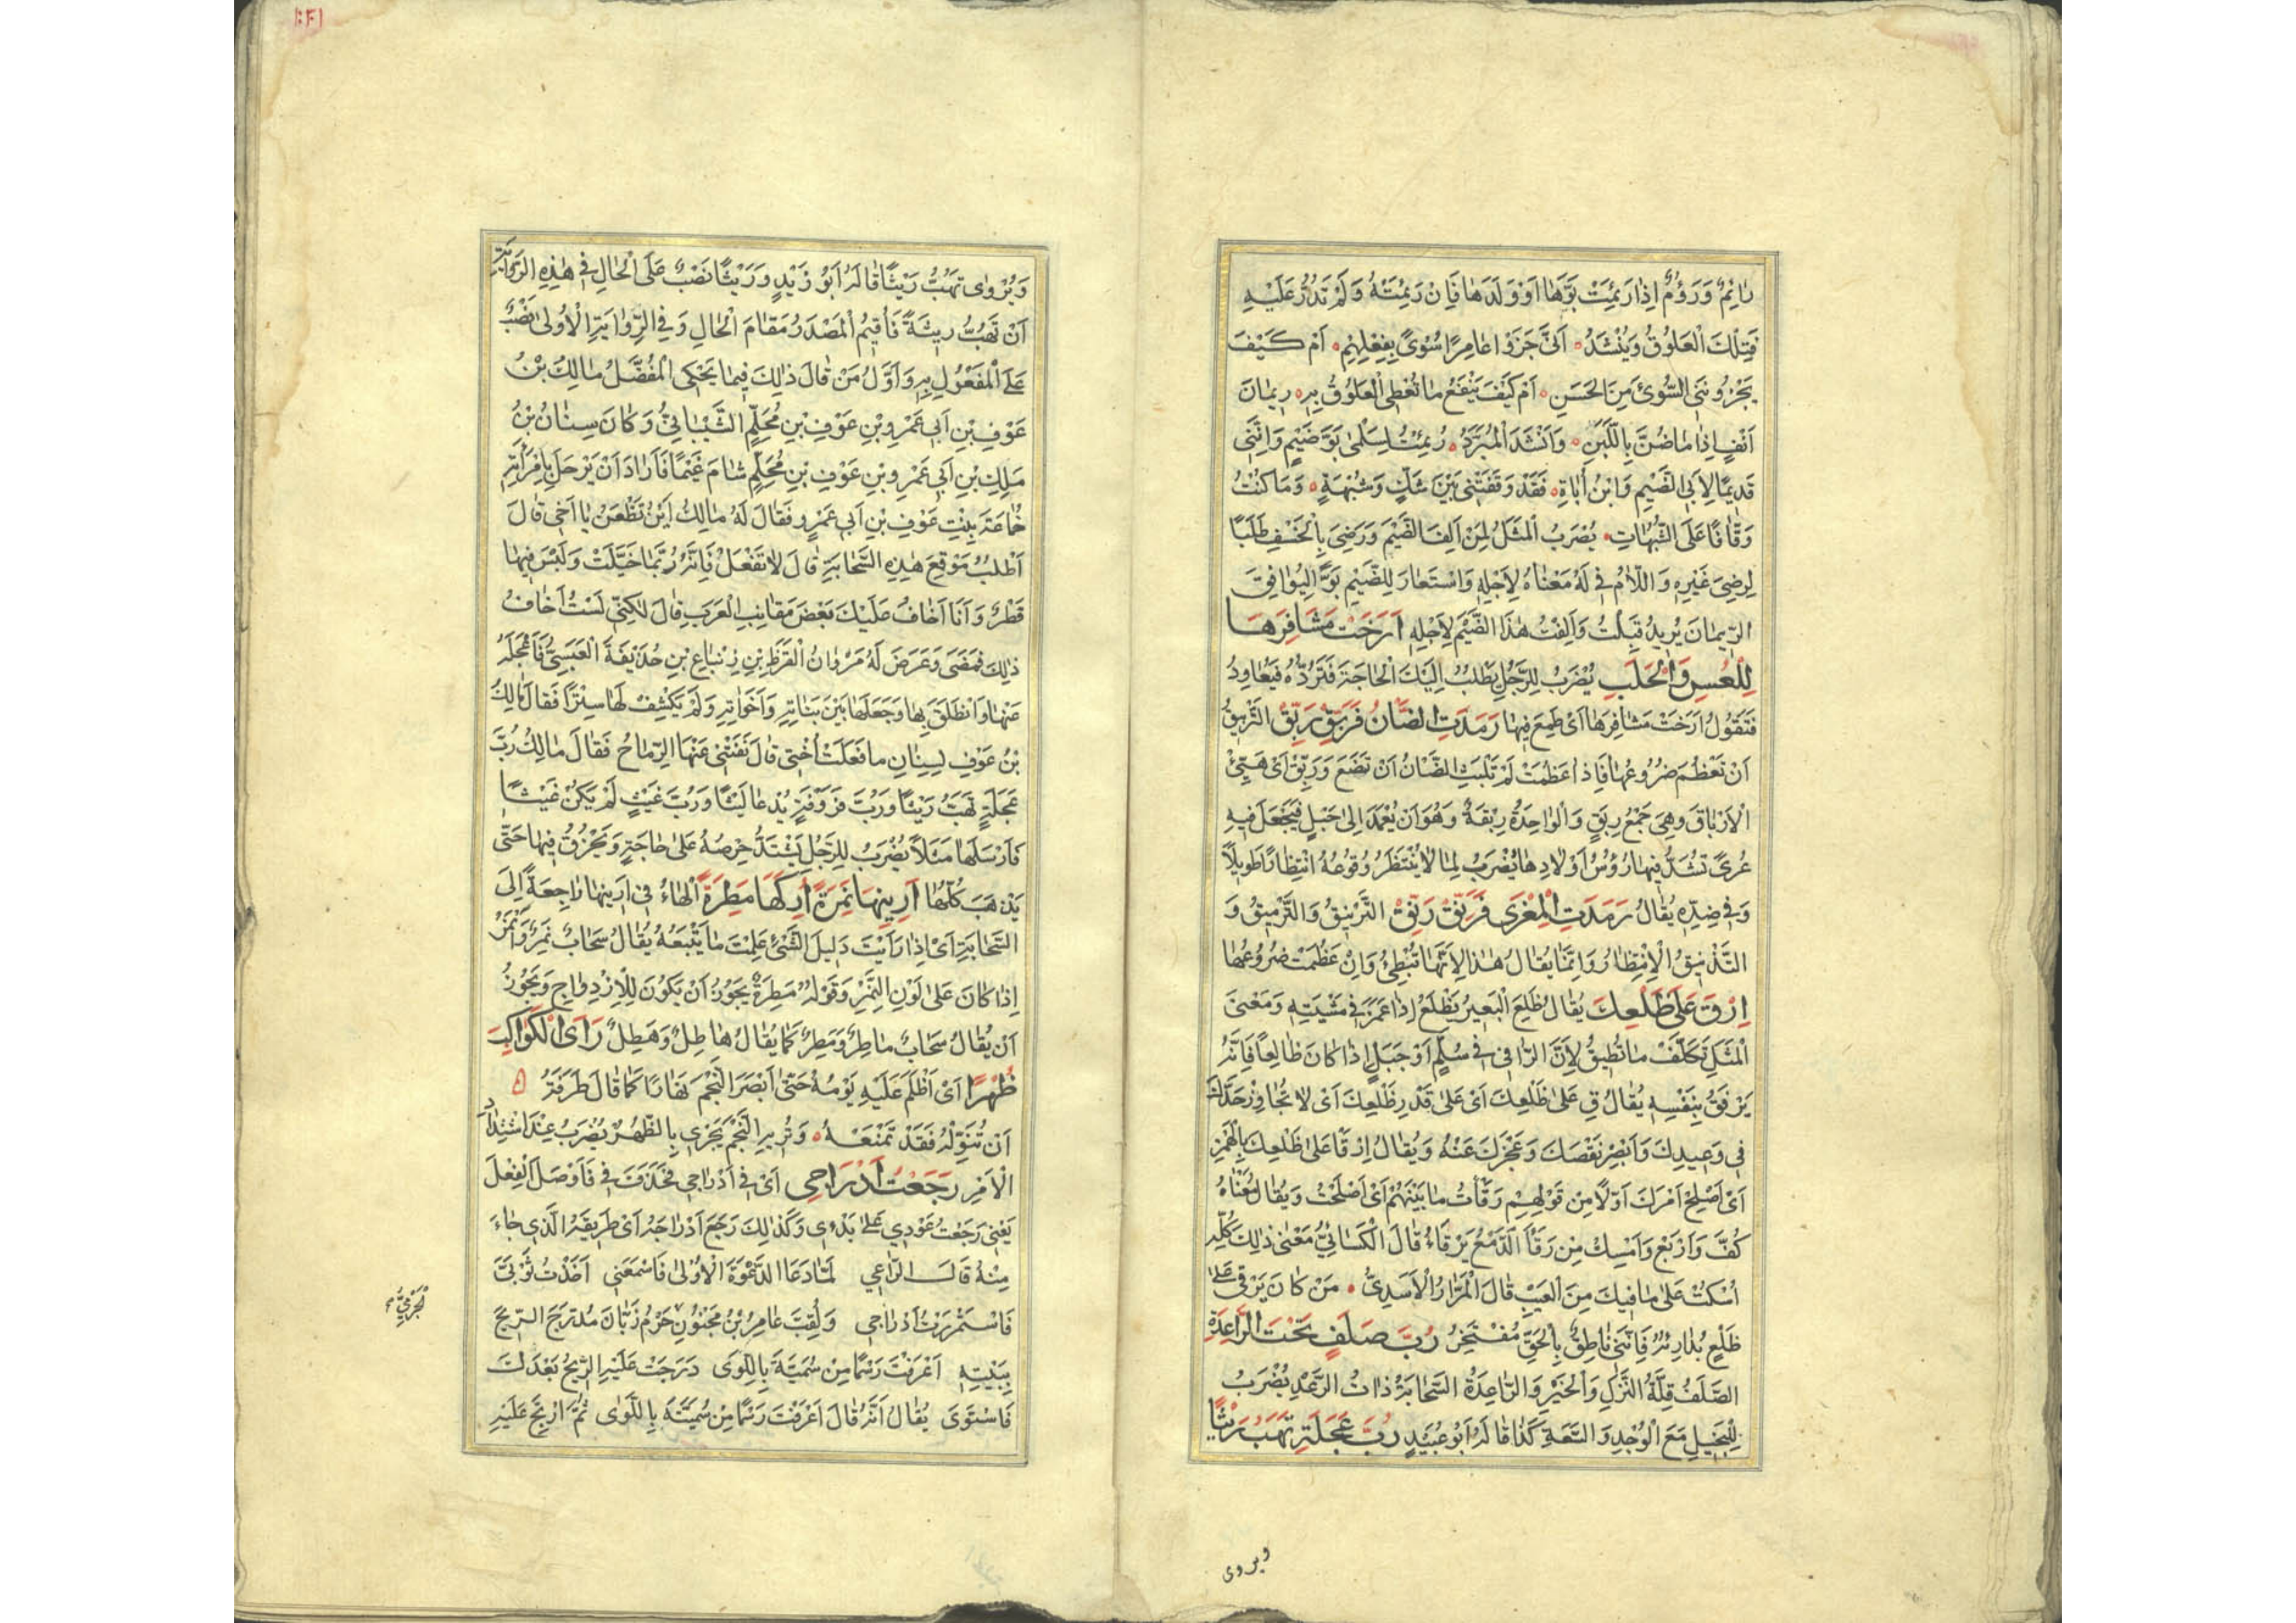 رائِمٌ وَرَؤُمٌ اِذا رَئِمَتْ بَوَّهَا اَوْ وَلَدَهَا فَاِنْ رَئِمَتْهُ وَلَمْ تَدُرَّ عَلَيْهِ
فَتِلْكَ الْعَلُوقُ وَيُنْشَدُ اَنَّى جَزَوْا عامِرًا سُوئً بِفِعْلِهِمِ اَمْ كَيْفَ
يَجْزُونَنِي السُّوئَ مِنَ الحَسَنِ اَمْ كَيْفَ يَنْفَعُ ما تُعْطِي الْعَلُوقُ بِهِ رِيمانَ
اَنْفٍ اِذا ما ضُنَّ بِاللَّبَنِ وَاَنْشَدَ الْمُبَرَّدُ رُئِمْتُ لِسَلْمىٰ بَوَّ ضَيْمٍ وَاِنَّنِي
قَدِيمًا لِاَبِي الضَّيْمِ وَابْنُ اُباةِ فَقَدْ وَقَفَتْنِي بَيْنَ شَكٍّ وَشُبْهَةٍ وَمَا كُنْتُ
وَقّافًا عَلَى الشُّبُهاتِ يُضْرَبُ الْمَثَلُ لِمَنْ اَلِفَ الضَّيْمَ وَرَضِيَ بِالْخَسْفِ طَلَبًا
لِرِضىَ غَيْرِهِ وَاللّامُ فِي لَهُ مَعْناهُ لِاَجْلِهِ وَاسْتَعارَ لِلضَّيْمِ بَوًّا لِيُوافِقَ
الرِّيمانَ يُرِيدُ قَبِلْتُ وَاَلِفْتُ هٰذَا الضَّيْمَ لِاَجْلِهِ اَرْخَتْ مَشَافِرَهَا
لِلْعُسِّ وَالْحَلَبِ يُضْرَبُ لِلرَّجُلِ يَطْلُبُ اِلَيْكَ الْحاجَةَ فَتَرُدُّهُ فَيُعاوِدُ
فَتَقُولُ اَرْخَتْ مَشافِرَهَا اَىْ طَمِعَ فِيها رَمَدَتِ الضَّأنُ فَرَبِّقْ رَبِّقْ التَّرْمِيقُ
اَنْ تَعْظُمَ ضُرُوعُها فَاِذا عَظُمَتْ لَمْ تَلْبَثِ الضَّأنُ اَنْ تَضَعَ وَرَبِّقْ اَىْ هَيِّئْ
الْاَرْباقَ وَهِيَ جَمْعُ رِبَقٍ وَالْواحِدَةُ رِبْقَةٌ وَهُوَ اَنْ يُعْمَدَ اِلىٰ حَبْلٍ فَيُجْعَلَ فِيهِ
عُرىً تُشَدُّ فِيهَا رُؤُسُ اَوْلادِها يُضْرَبُ لِمَا لا يُنْتَظَرُ وُقُوعُهُ انْتِظارًا طَوِيلًا
وَفِي ضِدِّهِ يُقالُ رَمَدَتِ الْمِعْزى فَرَنِّقْ رَنِّقْ التَّرْنِيقُ وَالتَّرْمِيقُ وَ
التَّدْنِيقُ الْاِنْتِظارُ وَاِنَّما يُقالُ هٰذا لِاَنَّها تُبْطِئُ وَاِنْ عَظُمَتْ ضُرُوعُها
اِرْقَ عَلَى ظَلْعِكَ يُقالُ ظَلَعَ الْبَعِيرُ يَظْلَعُ اِذا غَمَزَ فِي مَشْيَتِهِ وَمَعْنىَ
الْمَثَلِ تَكَلَّفْ ما تُطِيقُ لِاَنَّ الرّاقِي فِي سُلَّمٍ اَوْ جَبَلٍ اِذا كانَ ظالِعًا فَاِنَّهُ
يَرْفَقُ بِنَفْسِهِ يُقالُ قِ عَلىٰ ظَلْعِكَ اَىْ عَلىٰ قَدْرِ ظَلْعِكَ اَىْ لا تُجاوِزْ حَدَّكَ
فِي وَعِيدِكَ وَاَبْصِرْ نَقْصَكَ وَعَجْزَكَ عَنْهُ وَيُقالُ اِرْقَأْ عَلىٰ ظَلْعِكَ بِالْهَمْزِ
اَىْ اَصْلِحْ اَمْرَكَ اَوَّلًا مِنْ قَوْلِهِمْ رَقَأْتُ ما بَيْنَهُمْ اَىْ اَصْلَحْتُ وَيُقالُ مَعْناهُ
كُفَّ وَارْبَعْ وَاَمْسِكْ مِنْ رَقَأَ الدَّمْعُ يَرْقَاءُ قالَ الْكِسائِيُّ مَعْنىٰ ذٰلِكَ كُلِّهِ
اُسْكُتْ عَلىٰ ما فِيكَ مِنَ الْعَيْبِ قالَ الْمَرّارُ الْاَسَدِيُّ مَنْ كانَ يَرْقىٰ عَلىٰ
ظَلْعٍ يُدارِئُهُ فَاِنَّنِي ناطِقٌ بِالْحَقِّ مُفْتَخِرُ رُبَّ صَلَفٍ تَحْتَ الرّاعِدَةِ
الصَّلَفُ قِلَّةُ النَّزَلِ وَالْخَيْرِ وَالرّاعِدَةُ السَّحابَةُ ذاتُ الرَّعْدِ يُضْرَبُ
لِلْبَخِيلِ مَعَ الْوُجْدِ وَالسَّعَةِ كَذا قالَهُ اَبُو عُبَيْدٍ رُبَّ عَجَلَةٍ تَهَبُ رَيْثًا
ويروى
وَيُرْوٰى تَهُبُّ رَيْثًا قالَهُ اَبُو زَيْدٍ وَرَيْثًا نَصْبٌ عَلَى الْحالِ فِي هٰذِهِ الرِّوايَةِ
اَنْ تَهُبُّ رِيثَةً فَاُقِيمُ الْمَصْدَرُ مَقامَ الْحالِ وَفِي الرِّوايَةِ الْاُولىٰ نَصْبٌ
عَلَى الْمَفْعُولِ بِهِ وَاَوَّلُ مَنْ قالَ ذٰلِكَ فِيما يَحْكِي الْمُفَضَّلُ مالِكُ بْنُ
عَوْفِ بْنِ اَبِي عَمْرِو بْنِ عَوْفِ بْنِ مُحَلِّمٍ الشَّيْبانِيُّ وَكانَ سِنانُ بْنُ
مٰلِكِ بْنِ اَبِي عَمْرِو بْنِ عَوْفِ بْنِ مُحَلِّمٍ شامَ غَيْمًا فَاَرادَ اَنْ يَرْحَلَ بِامْرَأَتِهِ
خُماعَةَ بِنْتِ عَوْفِ بْنِ اَبِي عَمْرٍو فَقالَ لَهُ مالِكٌ اَيْنَ تَظْعَنُ يا اَخِي قالَ
اَطْلُبُ مَوْقِعَ هٰذِهِ السَّحابَةِ قالَ لا تَفْعَلْ فَاِنَّهُ رُبَّما خَيَّلَتْ وَلَيْسَ فِيها
قَطْرٌ وَاَنَا اَخافُ عَلَيْكَ بَعْضَ مَقانِبِ الْعَرَبِ قالَ لٰكِنِّي لَسْتُ اَخافُ
ذٰلِكَ فَمَضىَ وَعَرَضَ لَهُ مَرْوانُ الْقَرَظِ بْنِ زِنْباعِ بْنِ حُذَيْفَةَ الْعَبَسِيُّ فَاَعْجَلَهُ
عَنْها وَانْطَلَقَ بِها وَجَعَلَها بَيْنَ بَناتِهِ وَاَخَواتِهِ وَلَمْ يَكْشِفْ لَها سِتْرًا فَقالَ مالِكُ
بْنُ عَوْفٍ لِسِنانٍ ما فَعَلَتْ اُخْتِي قالَ نَفَتْنِي عَنْهَا الرِّماحُ فَقالَ مالِكٌ رُبَّ
عَجَلَةٍ تَهَبُ رَيْثًا وَرُبَّ فَرَوْقَةٍ يُدْعا لَيْثًا وَرُبَّ غَيْثٍ لَمْ يَكُنْ غَيْثًا
فَاَرْسَلَها مَثَلًا يُضْرَبُ لِلرَّجُلِ يَشْتَدُّ حِرْصُهُ عَلىٰ حاجَةٍ وَيَخْرُقُ فِيها حَتّى
يَذْهَبَ كُلُّها اَرِينِها نَمِرَةً اُرِكَهَا مَطِرَةً اَلْهاءُ فِي اَرِينِها راجِعَةٌ اِلىَ
السَّحابَةِ اَىْ اِذا رَاَيْتَ دَلِيلَ الشَّىْءِ عَلِمْتَ ما يَتْبَعُهُ يُقالُ سَحابٌ نَمِرٌ وَاَنْمَرُ
اِذا كانَ عَلىٰ لَوْنِ النَّمِرِ وَقَوْلُهُ مَطِرَةً يَجُوزُ اَنْ يَكُونَ لِلْاِزْدِواجِ وَيَجُوزُ
اَنْ يُقالُ سَحابٌ ماطِرٌ وَمَطِرٌ كَما يُقالُ هاطِلٌ وَهَطِلٌ رَاَى الْكَواكِبَ
ظُهْرًا اَىْ اَظْلَمَ عَلَيْهِ يَوْمُهُ حَتّىٰ اَبْصَرَ النَّجْمَ نَهارًا كَما قالَ طَرَفَةُ
اَنْ تُنَوِّلْهُ فَقَدْ تَمْنَعُهُ وَتُرِيهِ النَّجْمَ يَجْرِي بِالظُّهُرْ يُضْرَبُ عِنْدَ اشْتِدادِ
الْاَمْرِ رَجَعْتُ اَدْرَاجِي اَىْ فِي اَدْراجِي فَحَذَفَ فِي فَاَوْصَلَ الْفِعْلَ
يَعْنِي رَجَعْتُ عَوْدِي عَلىٰ بَدْئِي وَكَذٰلِكَ رَجَعَ اَدْراجَهُ اَىْ طَرِيقَهُ الَّذِي جاءَ
مِنْهُ قالَ الرّاعِي لَمّا دَعَا الدَّعْوَةَ الْاُولىٰ فَاَسْمَعَنِي اَخَذْتُ ثَوْبَىَّ
فَاسْتَمْرَرْتُ اَدْراجِي وَلُقِّبَ عامِرُ بْنُ مَجْنُونٍ جَرْمُ زَبّانَ مُدَرِّجَ الرِّيحِ
الْجَرْمِيُّ
بِبَيْتِهِ اَعَرَفْتَ رَسْمًا مِنْ سُمَيَّةَ بِاللِّوىَ دَرَجَتْ عَلَيْهِ الرِّيحُ بَعْدَكَ
فَاسْتَوىَ يُقالُ اَنَّهُ قالَ اَعَرَفْتَ رَسْمًا مِنْ سُمَيَّةَ بِاللِّوٰى ثُمَّ اُرْتِجَ عَلَيْهِ